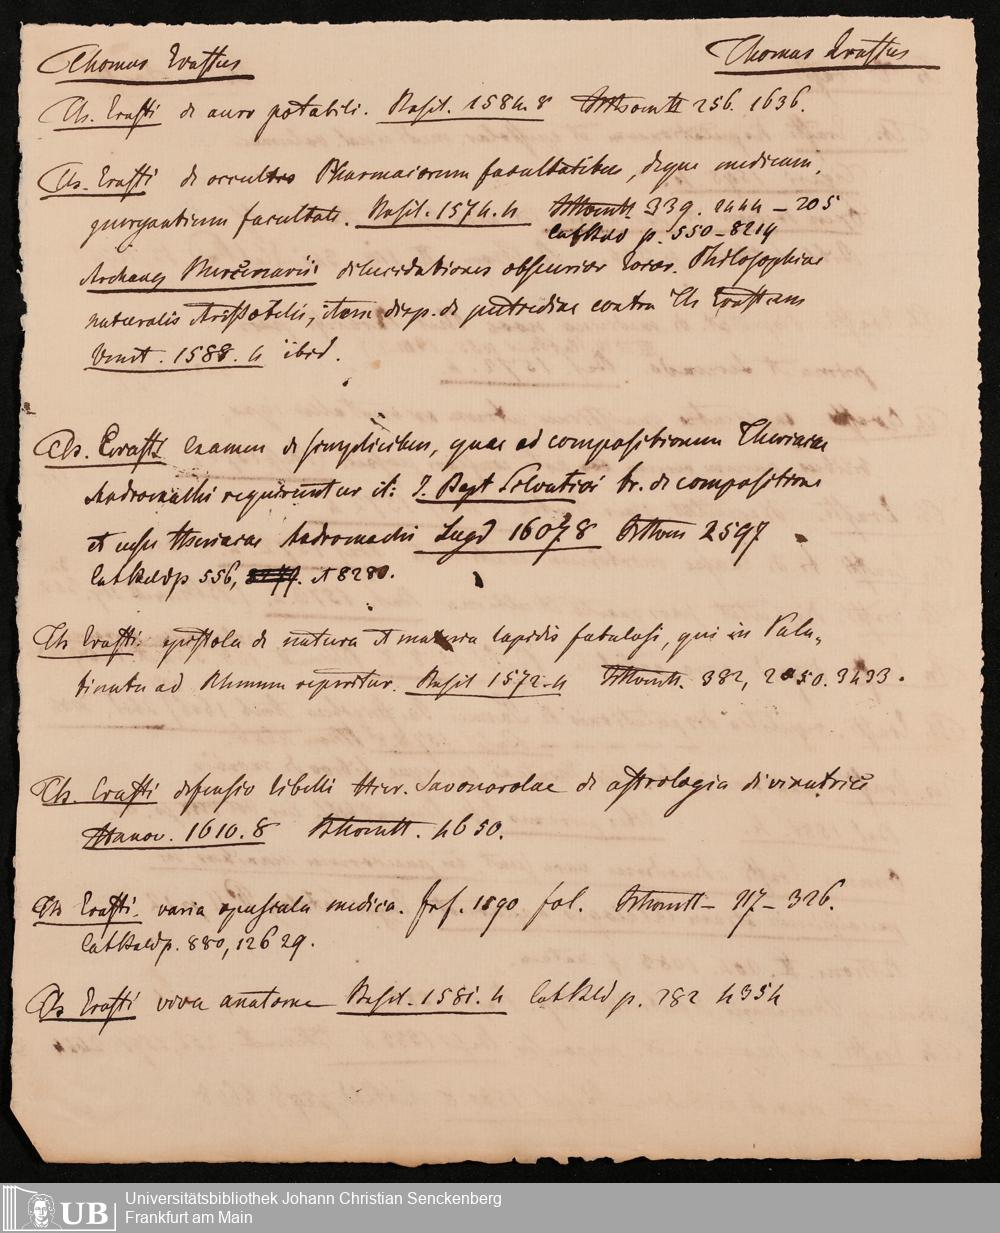 Thomas Erastus
Thomas Erastus
Th. Erasti de auro potabili. Basil. 1584. 8 256. 1636.
Th. Erasti de occultis Pharmacorum facultatibus, deque medicam.
purgantium facultate. Basil. 1574. 4 339. 2444 – 205
Cat Bald p. 550 – 8219
Archang Mercenarii dilucidationes obscurior locor. Philosophiae
naturalis Aristotelis, item disp. de putredine contra Th Erastum
Venet. 1588. 4 ibid.
Th. Erasti examen de simplicibus, quae ad compositionem Theriacae
Andromachi requiruntur it: J. Bapt Silvatici tr. de compositione
et usu theriacae Andromachi Lugd 1607. 8 2597
Cat Bald p 556, et 8280.
Th Erasti epistola de natura et materia lapidis fabulosi, qui in Pala-
tinatu ad Rhenum reperitur. Basil 1572. 4 382, 2050. 3433.
Th. Erasti defensio libelli Hier. Savonarolae de astrologia divinatrice
Hanov. 1610. 8 4650.
Th Erasti varia opuscula medica. Frf. 1590 fol. 217 – 326.
Cat Bald p. 880, 12629.
Th Erasti viva anatome Basil. 1581. 4 Cat Bald p. 282 4354
UB
Universitätsbibliothek Johann Christian Senckenberg
Frankfurt am Main